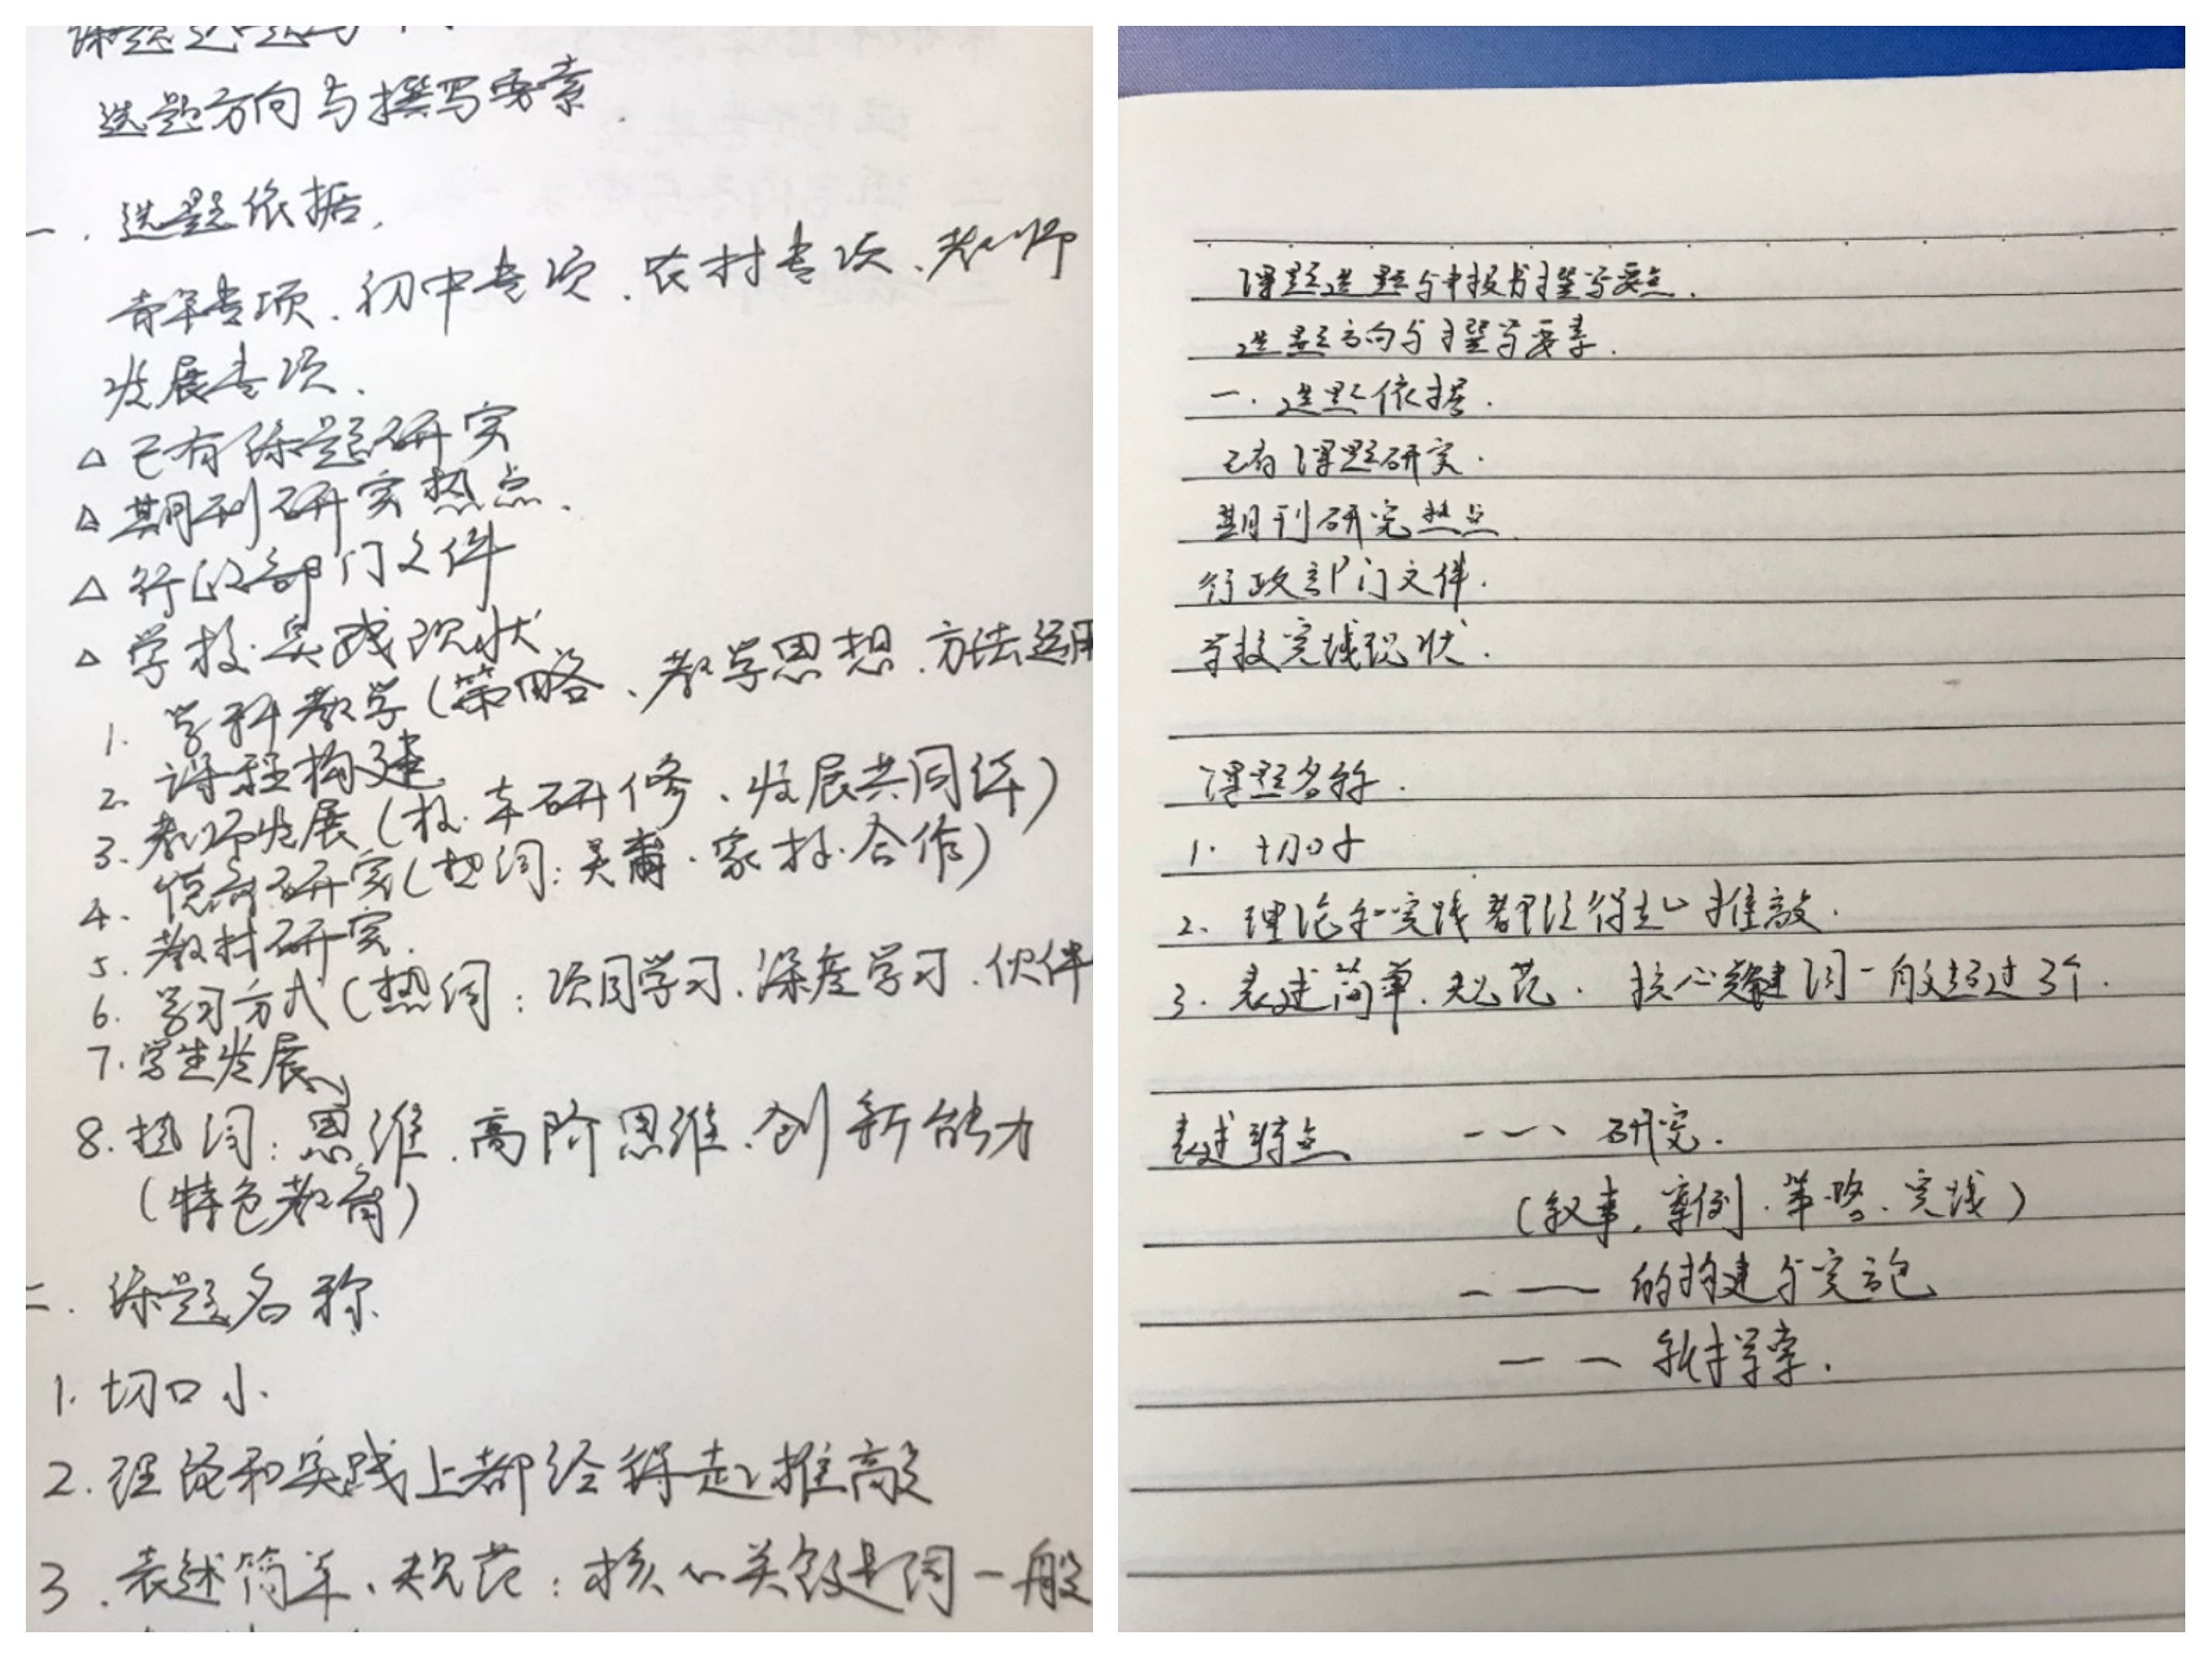 选题方向与撰写要素.
一. 选题依据.
青年专项、初中专项、农村专项、教师
发展专项.
△ 已有课题研究
△ 期刊研究热点.
△ 行政部门文件
△ 学校实践现状
1. 学科教学(策略、教学思想、方法运用
2. 课程构建
3. 教师发展(校本研修、发展共同体)
4. 德育研究(热词:美育、家校合作)
5. 教材研究.
6. 学习方式(热词:项目学习、深度学习、伙伴
7. 学生发展
8. 热词:思维、高阶思维、创新能力
(特色教育)
二. 课题名称
1. 切口小
2. 理论和实践上都经得起推敲
3. 表述简单、规范:核心关键词一般
课题选题与申报书撰写要点.
选题方向与撰写要素.
一. 选题依据.
已有课题研究.
期刊研究热点
行政部门文件.
学校实践现状.
课题名称.
1. 切口小
2. 理论和实践都经得起推敲.
3. 表述简单、规范. 核心关键词一般超过3个.
表述特点 --- 研究.
(叙事、案例、策略、实践)
-—— 的构建与实施
—— 新探索.